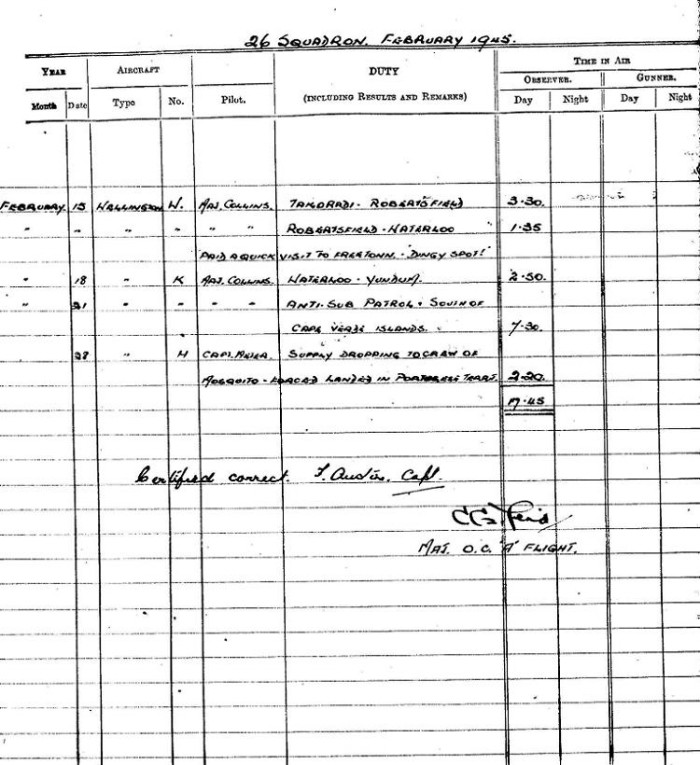 26 SQUADRON. FEBRUARY 1945.
YEAR AIRCRAFT DUTY TIME IN AIR
OBSERVER. GUNNER.
Month Date Type No. Pilot. (INCLUDING RESULTS AND REMARKS) Day Night Day Night
FEBRUARY 15 WELLINGTON W. COLLINS. TAKORADI - ROBERTSFIELD 3.30
" " " " " " ROBERTSFIELD - WATERLOO 1.35
"PAID A QUICK VISIT TO FREETOWN. - DINGY SPOT!"
" 18 " K COLLINS. WATERLOO - YUNDUM. 2.50
" 21 " " " " ANTI-SUB PATROL. SOUTH OF
CAPE VERDE ISLANDS. 7.30
28 " H CAPT. SUPPLY DROPPING TO CREW OF
MOSQUITO - FORCED LANDED IN PORTUGESE TERRT. 2.20
17.45
Certified correct. Capt.
MAJ. O.C. "A" FLIGHT.